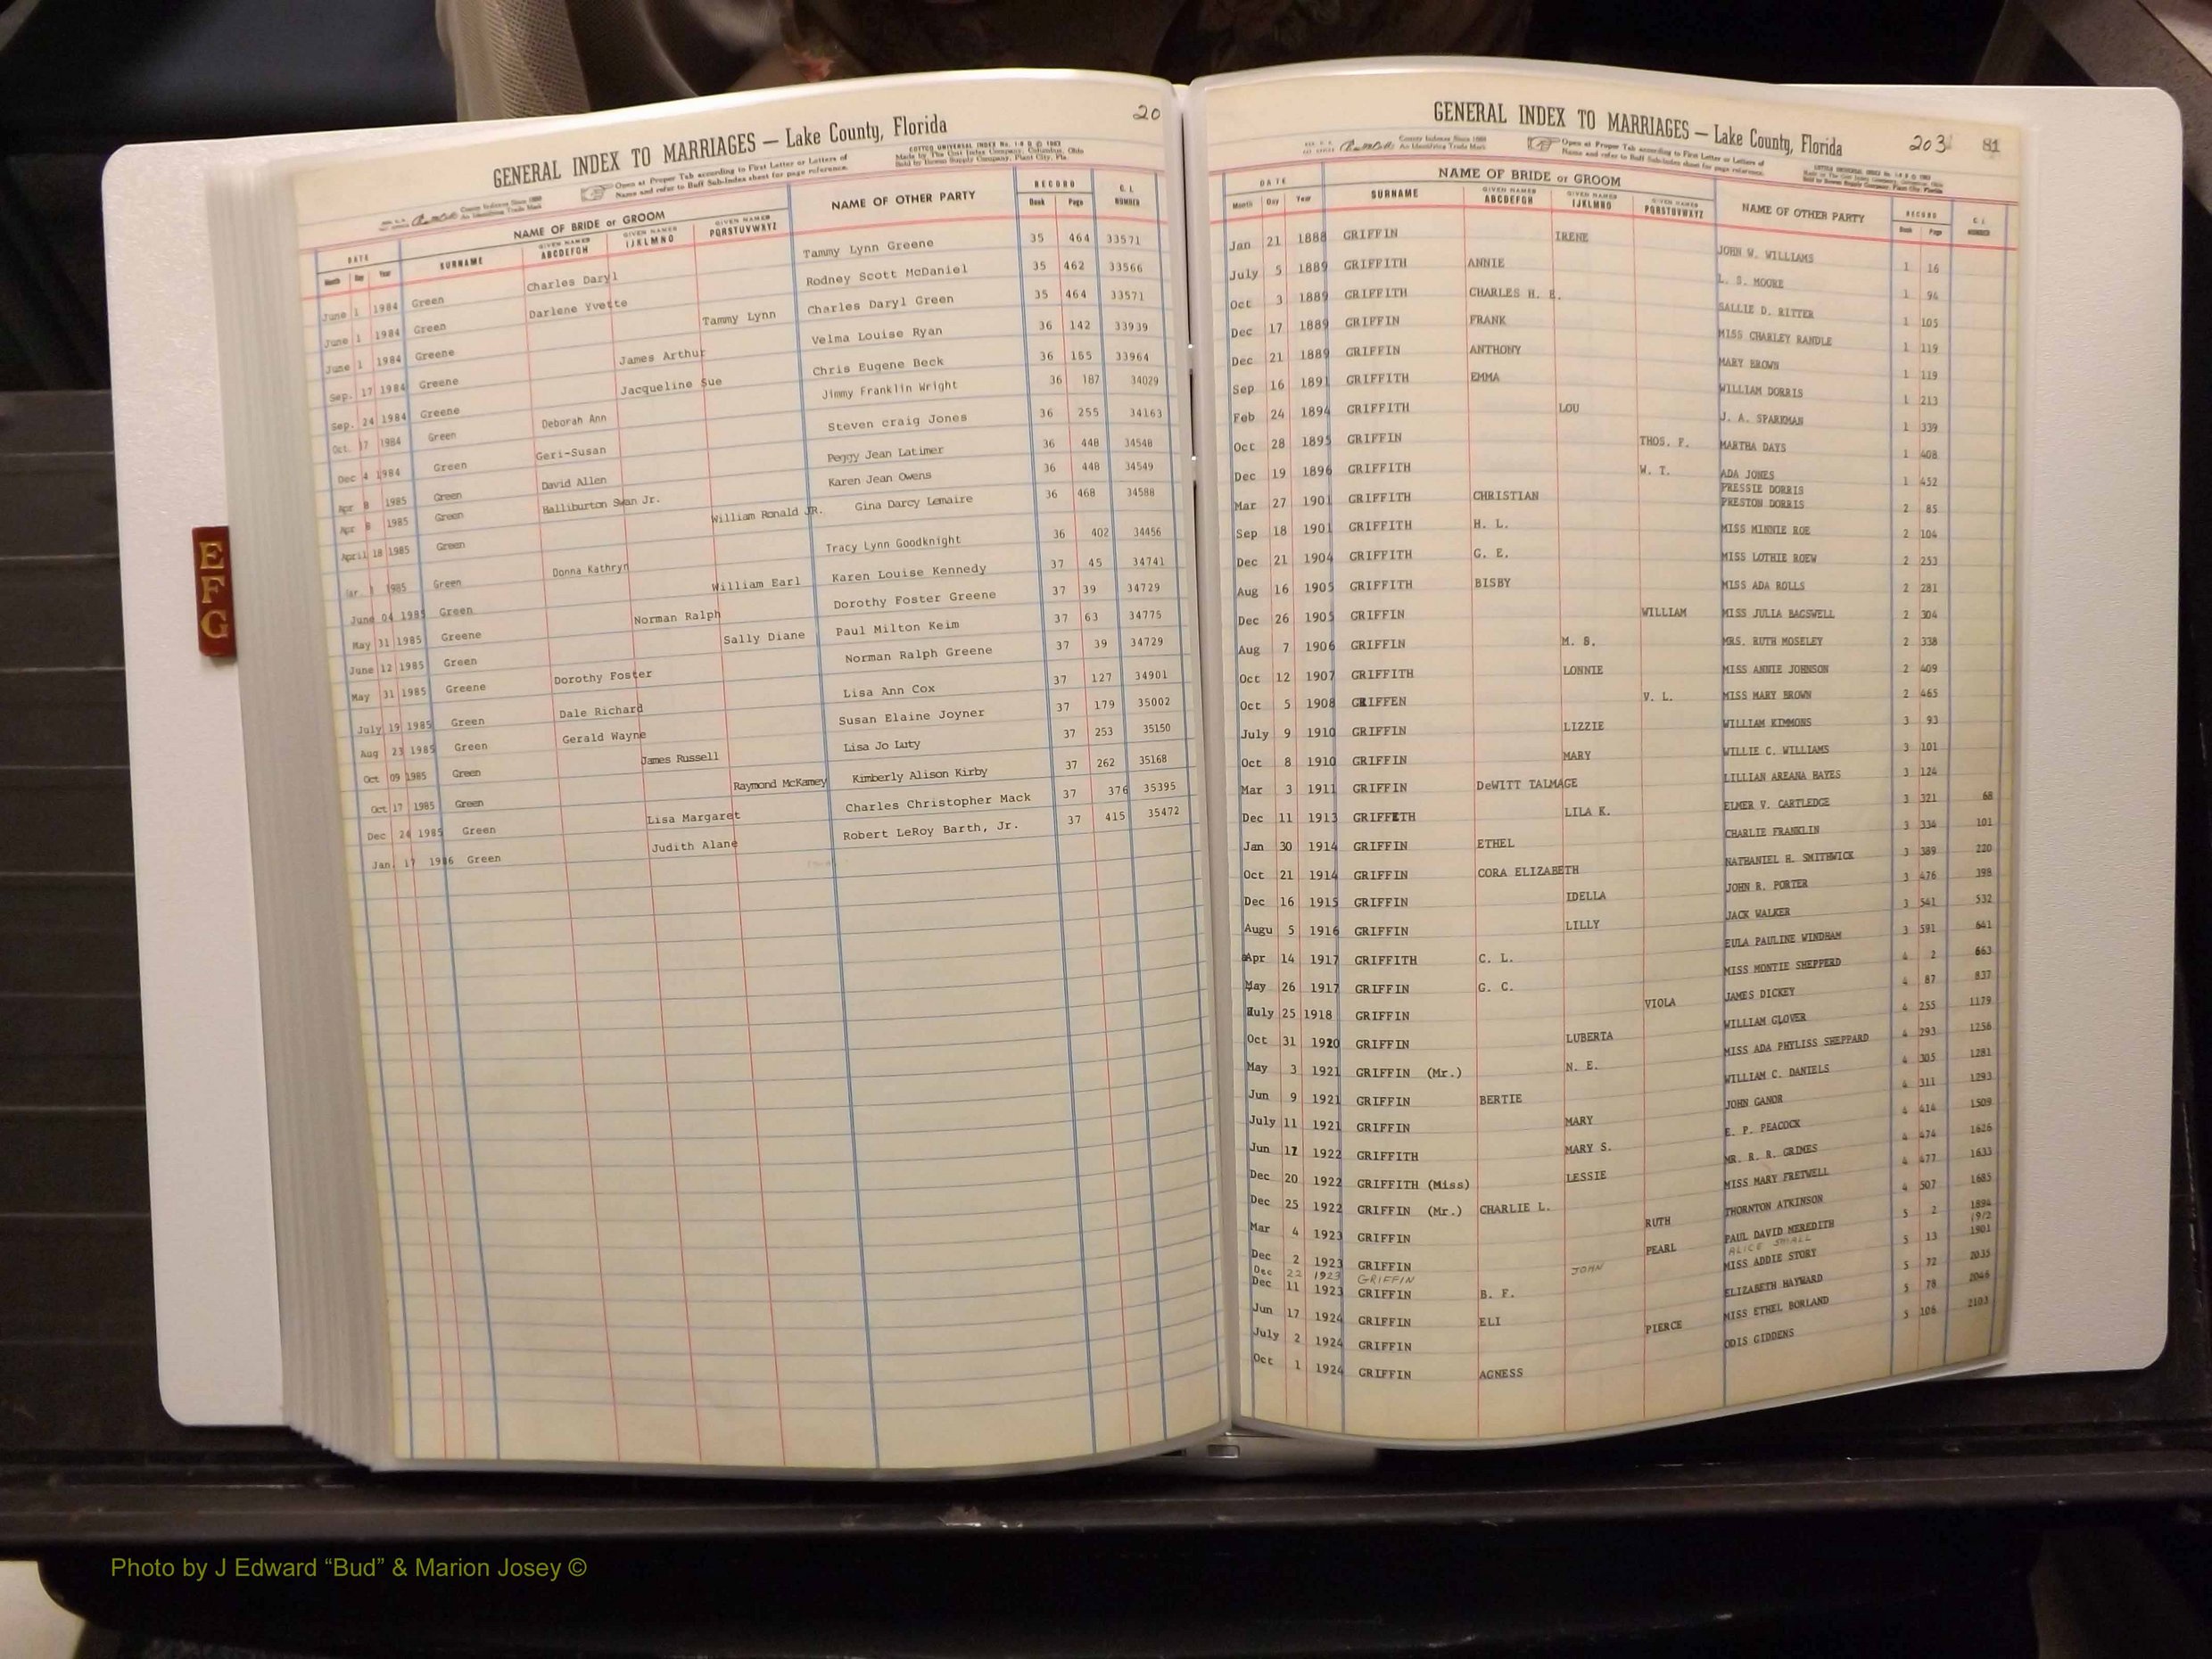 20
GENERAL INDEX TO MARRIAGES — Lake County, Florida
Open at Proper Tab according to First Letter or Letters of
Name and refer to Buff Sub-Index sheet for page reference.
DATE NAME OF BRIDE or GROOM NAME OF OTHER PARTY RECORD C. L.
Month Day Year SURNAME GIVEN NAMES ABCDEFGH GIVEN NAMES IJKLMNO GIVEN NAMES PQRSTUVWXYZ Book Page NUMBER
June 1 1984 Green Charles Daryl Tammy Lynn Greene 35 464 33571
June 1 1984 Green Darlene Yvette Rodney Scott McDaniel 35 462 33566
June 1 1984 Greene Tammy Lynn Charles Daryl Green 35 464 33571
Sep. 17 1984 Greene James Arthur Velma Louise Ryan 36 142 33939
Sep. 24 1984 Greene Jacqueline Sue Chris Eugene Beck 36 155 33964
Oct. 17 1984 Green Deborah Ann Jimmy Franklin Wright 36 187 34029
Dec 4 1984 Green Geri-Susan Steven craig Jones 36 255 34163
Apr 8 1985 Green David Allen Peggy Jean Latimer 36 448 34548
Apr 8 1985 Green Halliburton Swan Jr. Karen Jean Owens 36 448 34549
April 18 1985 Green William Ronald JR. Gina Darcy Lemaire 36 468 34588
1 1985 Green Donna Kathryn Tracy Lynn Goodknight 36 402 34456
June 04 1985 Green William Earl Karen Louise Kennedy 37 45 34741
May 31 1985 Greene Norman Ralph Dorothy Foster Greene 37 39 34729
June 12 1985 Green Sally Diane Paul Milton Keim 37 63 34775
May 31 1985 Greene Dorothy Foster Norman Ralph Greene 37 39 34729
July 19 1985 Green Dale Richard Lisa Ann Cox 37 127 34901
Aug 23 1985 Green Gerald Wayne Susan Elaine Joyner 37 179 35002
Oct 09 1985 Green James Russell Lisa Jo Luty 37 253 35150
Oct 17 1985 Green Raymond McKamey Kimberly Alison Kirby 37 262 35168
Dec 24 1985 Green Lisa Margaret Charles Christopher Mack 37 376 35395
Jan. 17 1986 Green Judith Alane Robert LeRoy Barth, Jr. 37 415 35472
E
F
G
203 81
GENERAL INDEX TO MARRIAGES — Lake County, Florida
Open at Proper Tab according to First Letter or Letters of
Name and refer to Buff Sub-Index sheet for page reference.
DATE NAME OF BRIDE or GROOM NAME OF OTHER PARTY RECORD C. L.
Month Day Year SURNAME GIVEN NAMES ABCDEFGH GIVEN NAMES IJKLMNO GIVEN NAMES PQRSTUVWXYZ Book Page NUMBER
Jan 21 1888 GRIFFIN IRENE JOHN W. WILLIAMS 1 16
July 5 1889 GRIFFITH ANNIE L. S. MOORE 1 94
Oct 3 1889 GRIFFITH CHARLES H. E. SALLIE D. RITTER 1 105
Dec 17 1889 GRIFFIN FRANK MISS CHARLEY RANDLE 1 119
Dec 21 1889 GRIFFIN ANTHONY MARY BROWN 1 119
Sep 16 1891 GRIFFITH EMMA WILLIAM DORRIS 1 213
Feb 24 1894 GRIFFITH LOU J. A. SPARKMAN 1 339
Oct 28 1895 GRIFFIN THOS. F. MARTHA DAYS 1 408
Dec 19 1896 GRIFFITH W. T. ADA JONES 1 452
PRESSIE DORRIS
Mar 27 1901 GRIFFITH CHRISTIAN PRESTON DORRIS 2 85
Sep 18 1901 GRIFFITH H. L. MISS MINNIE ROE 2 104
Dec 21 1904 GRIFFITH G. E. MISS LOTHIE ROEW 2 253
Aug 16 1905 GRIFFITH BISBY MISS ADA ROLLS 2 281
Dec 26 1905 GRIFFIN WILLIAM MISS JULIA BAGSWELL 2 304
Aug 7 1906 GRIFFIN M. S. MRS. RUTH MOSELEY 2 338
Oct 12 1907 GRIFFITH LONNIE MISS ANNIE JOHNSON 2 409
Oct 5 1908 GRIFFEN V. L. MISS MARY BROWN 2 465
July 9 1910 GRIFFIN LIZZIE WILLIAM KIMMONS 3 93
Oct 8 1910 GRIFFIN MARY WILLIE C. WILLIAMS 3 101
Mar 3 1911 GRIFFIN DeWITT TALMAGE LILLIAN AREANA HAYES 3 124
Dec 11 1913 GRIFFETH LILA K. ELMER V. CARTLEDGE 3 321 68
Jan 30 1914 GRIFFIN ETHEL CHARLIE FRANKLIN 3 334 101
Oct 21 1914 GRIFFIN CORA ELIZABETH NATHANIEL H. SMITHWICK 3 389 220
Dec 16 1915 GRIFFIN IDELLA JOHN R. PORTER 3 476 398
Augu 5 1916 GRIFFIN LILLY JACK WALKER 3 541 532
Apr 14 1917 GRIFFITH C. L. EULA PAULINE WINDHAM 3 591 641
May 26 1917 GRIFFIN G. C. MISS MONTIE SHEPPERD 4 2 663
July 25 1918 GRIFFIN VIOLA JAMES DICKEY 4 87 837
Oct 31 1920 GRIFFIN LUBERTA WILLIAM GLOVER 4 255 1179
May 3 1921 GRIFFIN (Mr.) N. E. MISS ADA PHYLISS SHEPPARD 4 293 1256
Jun 9 1921 GRIFFIN BERTIE WILLIAM C. DANIELS 4 305 1281
July 11 1921 GRIFFIN MARY JOHN GANOR 4 311 1293
Jun 12 1922 GRIFFITH MARY S. E. P. PEACOCK 4 414 1509
Dec 20 1922 GRIFFITH (Miss) LESSIE MR. R. R. GRIMES 4 474 1626
Dec 25 1922 GRIFFIN (Mr.) CHARLIE L. MISS MARY FRETWELL 4 477 1633
Mar 4 1923 GRIFFIN RUTH THORNTON ATKINSON 4 507 1685
Dec 2 1923 GRIFFIN PEARL PAUL DAVID MEREDITH 5 2 1894
Dec 22 1923 GRIFFIN JOHN ALICE SMALL 1912
Dec 11 1923 GRIFFIN B. F. MISS ADDIE STORY 5 13 1901
Jun 17 1924 GRIFFIN ELI ELIZABETH HAYWARD 5 72 2035
July 2 1924 GRIFFIN PIERCE MISS ETHEL BORLAND 5 78 2046
Oct 1 1924 GRIFFIN AGNESS ODIS GIDDENS 5 106 2103
Photo by J Edward “Bud” & Marion Josey ©